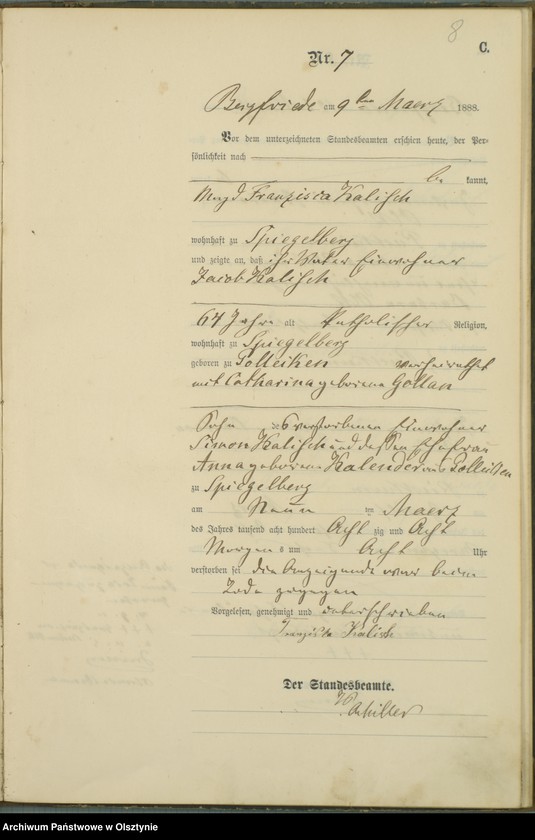 8
C.
Nr. 7
Bergfriede am 9ten Maerz 1888.
Vor dem unterzeichneten Standesbeamten erschien heute, der Per-
sönlichkeit nach
be kannt,
Magd Franzisca Kalisch
wohnhaft zu Spiegelberg
und zeigte an, daß ihr Vater Einwohner
Jacob Kalisch
64 Jahre alt katholischer Religion,
wohnhaft zu Spiegelberg
geboren zu Polleiken verheirathet
mit Catharina geborene Gollan
Sohn des verstorbenen Einwohner
Simon Kalisch und dessen Ehefrau
Anna geborene Kalender aus Polleiken
zu Spiegelberg
am Neun ten Maerz
des Jahres tausend acht hundert Acht zig und Acht
Morgens um Acht Uhr
verstorben sei die Anzeigende war beim
Tode zugegen
Vorgelesen, genehmigt und unterschrieben
Franziska Kalisch
Der Standesbeamte.
Schiller
Archiwum Państwowe w Olsztynie